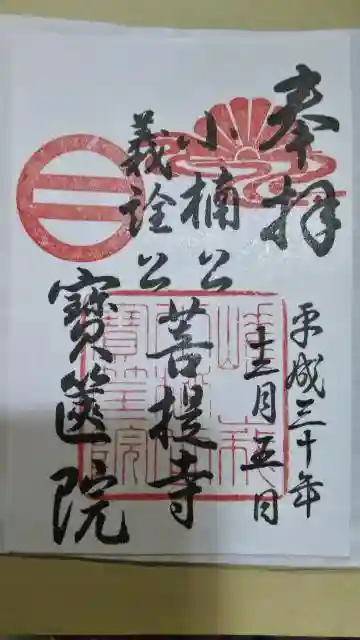 奉拝
平成三十年
十二月五日
小楠公
義詮公
菩提寺
寶篋院